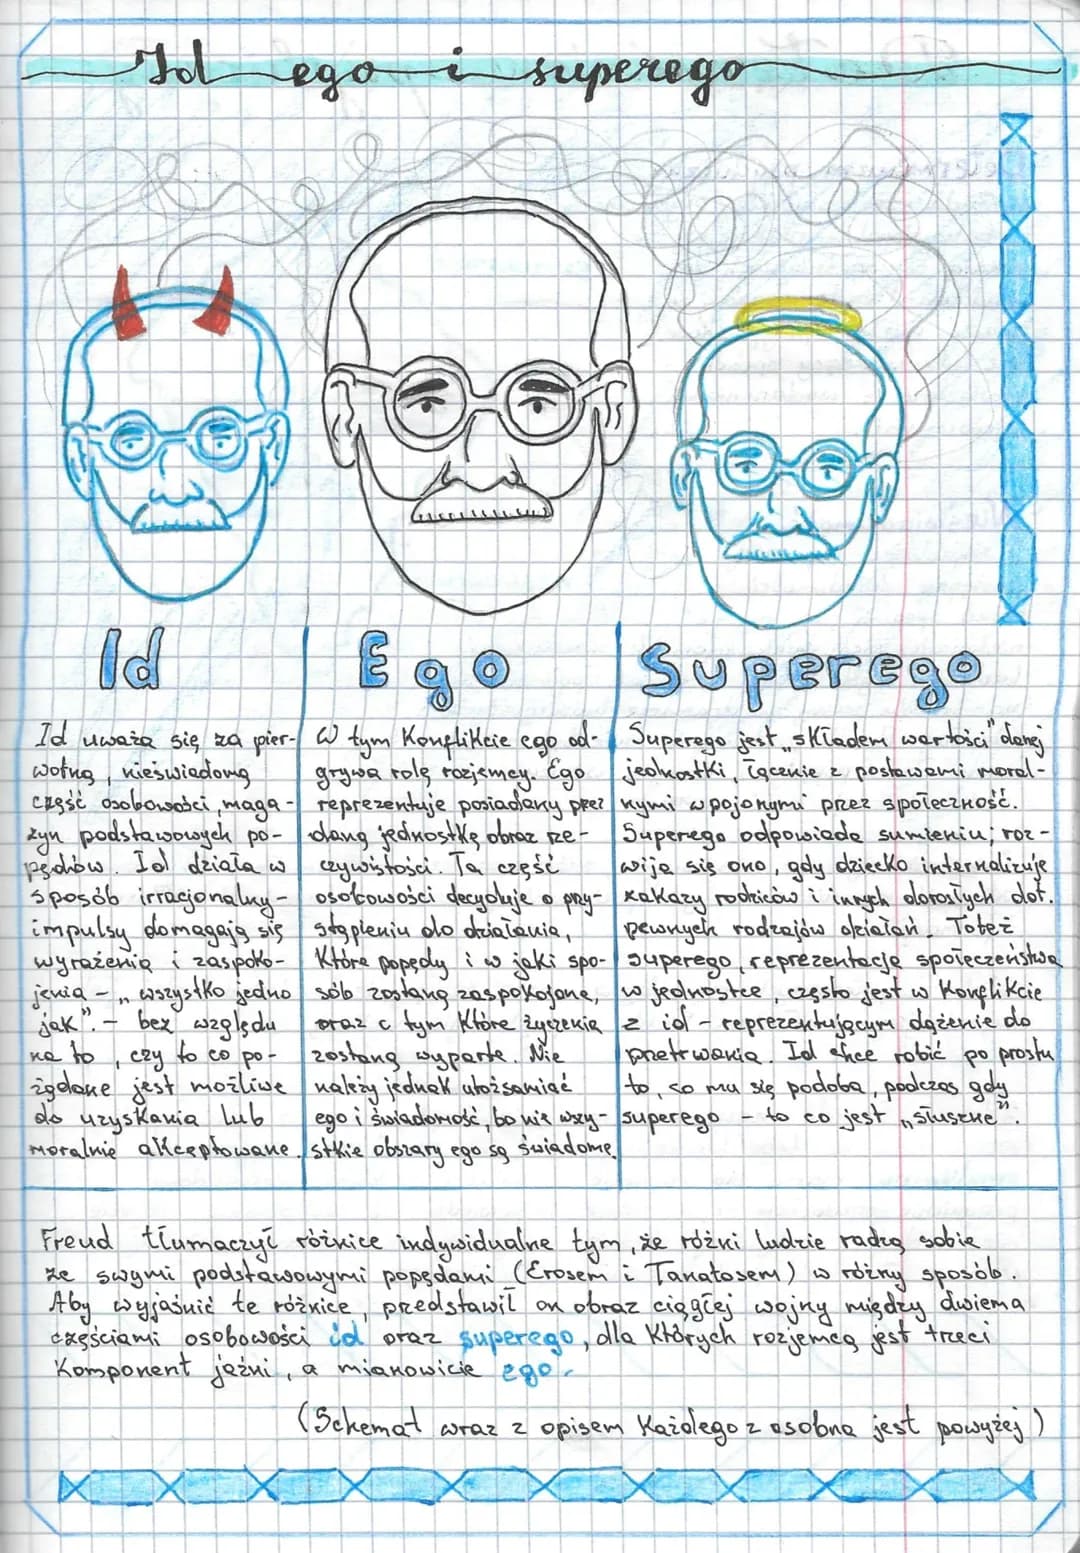 Id ego i superego
Id
Ego
Superego
Id uważa się za pier-
wotną, nieświadomą
część osobowości, maga-
zyn podstawowych po-
pędów. Id działa w
sposób irracjonalny-
impulsy domagają się
wyrażenia i zaspoko-
jenia - „wszystko jedno
jak". - bez względu
na to, czy to co po-
żądane jest możliwe
do uzyskania lub
moralnie akceptowane.
W tym konflikcie ego od-
grywa rolę rozjemcy. Ego
reprezentuje posiadany przez
daną jednostkę obraz rze-
czywistości. Ta część
osobowości decyduje o przy-
stąpieniu do działania,
które popędy i w jaki spo-
sób zostaną zaspokojone,
oraz o tym które życzenia
zostaną wyparte. Nie
należy jednak utożsamiać
ego i świadomość, bo nie wszy-
stkie obszary ego są świadome.
Superego jest „składem wartości" danej
jednostki, łącznie z postawami moral-
nymi wpojonymi przez społeczność.
Superego odpowiada sumieniu; roz-
wija się ono, gdy dziecko internalizuje
zakazy rodziców i innych dorosłych dot.
pewnych rodzajów działań. Toteż
superego, reprezentacja społeczeństwa
w jednostce, często jest w konflikcie
z id - reprezentującym dążenie do
przetrwania. Id chce robić po prostu
to, co mu się podoba, podczas gdy
superego - to co jest „słuszne".
Freud tłumaczył różnice indywidualne tym, że różni ludzie radzą sobie
ze swymi podstawowymi popędami (Erosem i Tanatosem) w różny sposób.
Aby wyjaśnić te różnice, przedstawił on obraz ciągłej wojny między dwiema
częściami osobowości id oraz superego, dla których rozjemcą jest trzeci
komponent jaźni, a mianowicie ego.
(Schemat wraz z opisem każdego z osobna jest powyżej)